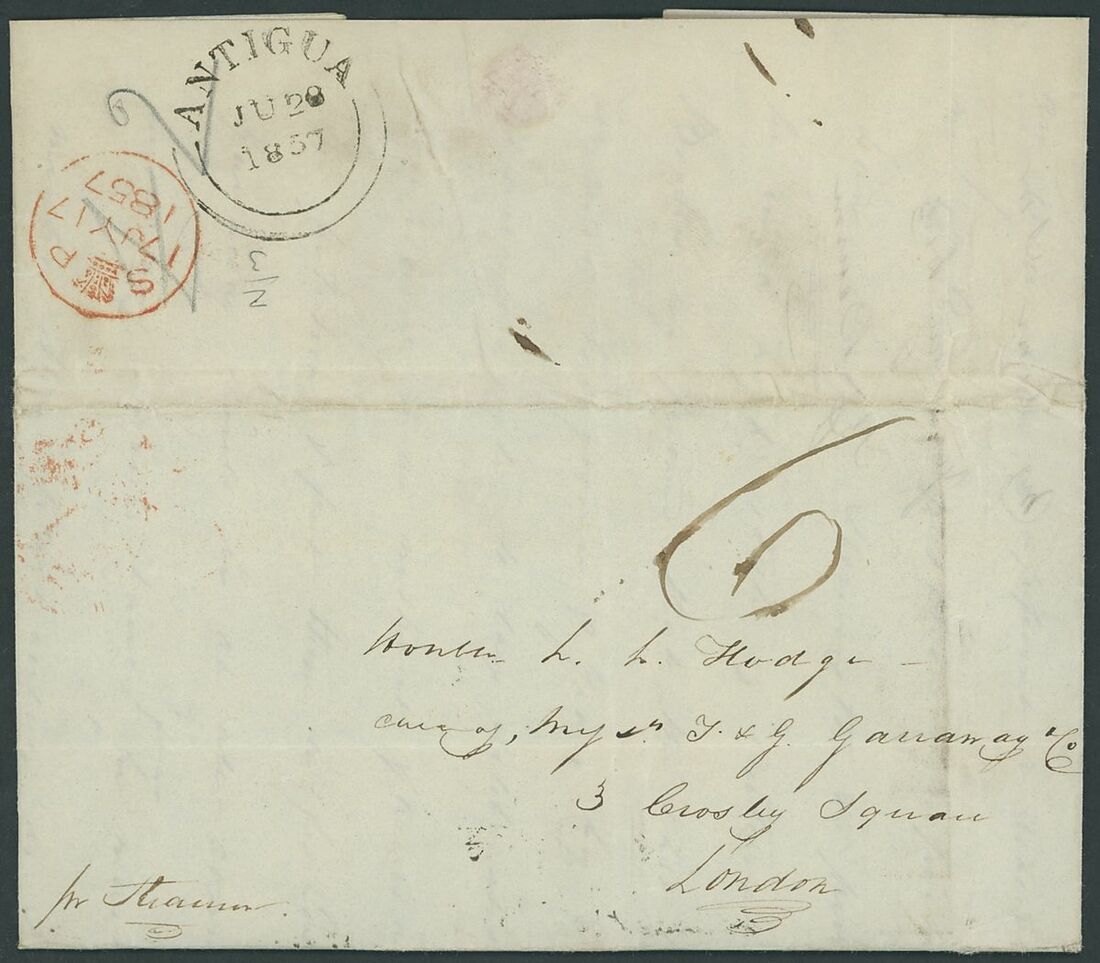 ANTIGUA
JU 28
1857
1857
17
6
L. L. Hodge
care of, Mess rs T. & G. Garraway & Co
3 Crosby Square
London
pr Steamer